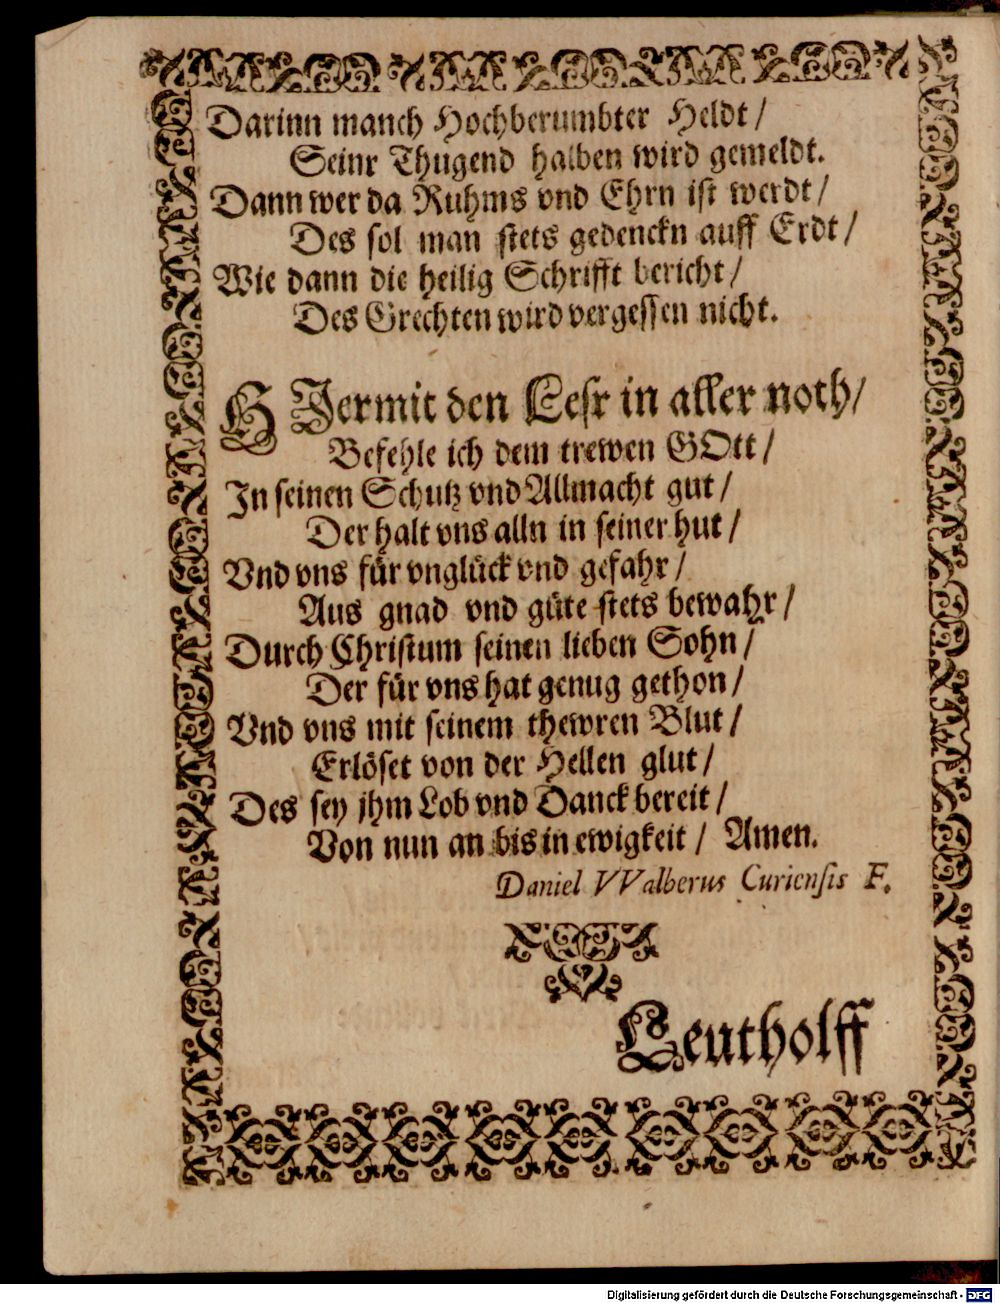 Darinn manch Hochberumbter Heldt /
Seinr Thugend halben wird gemeldt.
Dann wer da Ruhms vnd Ehrn ist werdt /
Des sol man stets gedenckn auff Erdt /
Wie dann die heilig Schrifft bericht /
Des Grechten wird vergessen nicht.
HJermit den Lesr in aller noth /
Befehle ich dem trewen GOtt /
Jn seinen Schutz vnd Allmacht gut /
Der halt vns alln in seiner hut /
Vnd vns für vnglück vnd gefahr /
Aus gnad vnd güte stets bewahr /
Durch Christum seinen lieben Sohn /
Der für vns hat genug gethon /
Vnd vns mit seinem thewren Blut /
Erlöset von der Hellen glut /
Des sey jhm Lob vnd Danck bereit /
Von nun an bis in ewigkeit / Amen.
Daniel VValberus Curiensis F.
Leutholff
Digitalisierung gefördert durch die Deutsche Forschungsgemeinschaft - DFG